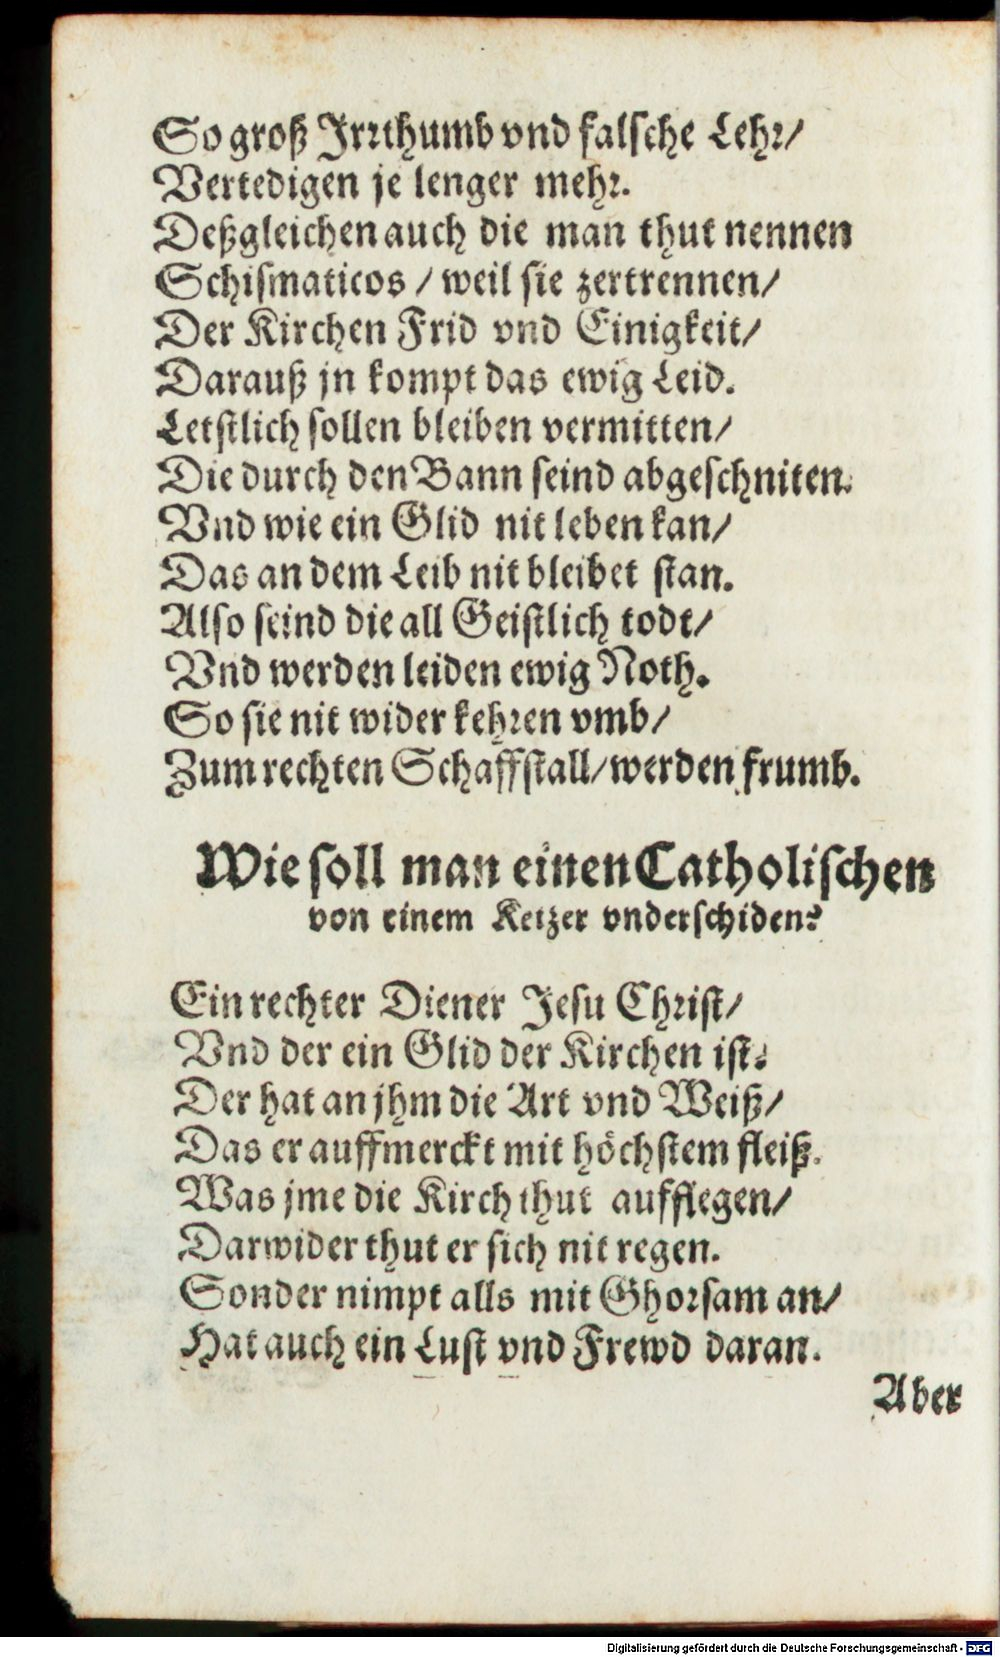 So groß Irrthumb vnd falsche Lehr/
Vertedigen je lenger mehr.
Deßgleichen auch die man thut nennen
Schismaticos / weil sie zertrennen/
Der Kirchen Frid vnd Einigkeit/
Darauß jn kompt das ewig Leid.
Letstlich sollen bleiben vermitten/
Die durch den Bann seind abgeschniten.
Vnd wie ein Glid nit leben kan/
Das an dem Leib nit bleibet stan.
Also seind die all Geistlich todt/
Vnd werden leiden ewig Noth.
So sie nit wider kehren vmb/
Zum rechten Schaffstall/werden frumb.
Wie soll man einen Catholischen
von einem Ketzer vnderschiden?
Ein rechter Diener Jesu Christ/
Vnd der ein Glid der Kirchen ist.
Der hat an jhm die Art vnd Weiß/
Das er auffmerckt mit höchstem fleiß.
Was jme die Kirch thut aufflegen/
Darwider thut er sich nit regen.
Sonder nimpt alls mit Ghorsam an/
Hat auch ein Lust vnd Frewd daran.
Aber
Digitalisierung gefördert durch die Deutsche Forschungsgemeinschaft - DFG